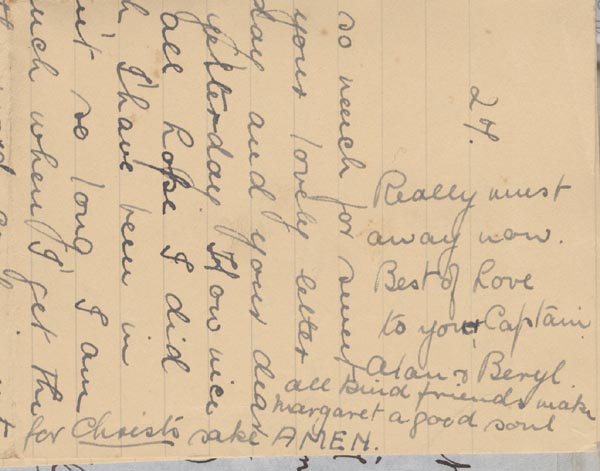 24.
so much for sweet
your lovely letter
day and your dear
yesterday. How nice
all hope I did
h I have been in
n't so long I am
uch when I get the
Really must
away now.
Best of Love
to your Captain
Alan & Beryl.
all kind friends make
Margaret a good soul
for Christs sake AMEN.